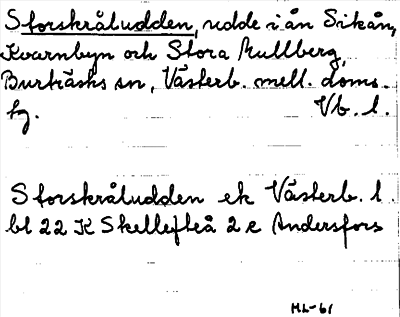 Storskråludden, udde i ån Sikån,
Kvarnbyn och Stora Mullberg,
Burträsks sn, Västerb. mell. doms.
hg. Vb. l.
Storskråludden ek Västerb. l.
bl 22 K Skellefteå 2 e Andersfors
ML-61